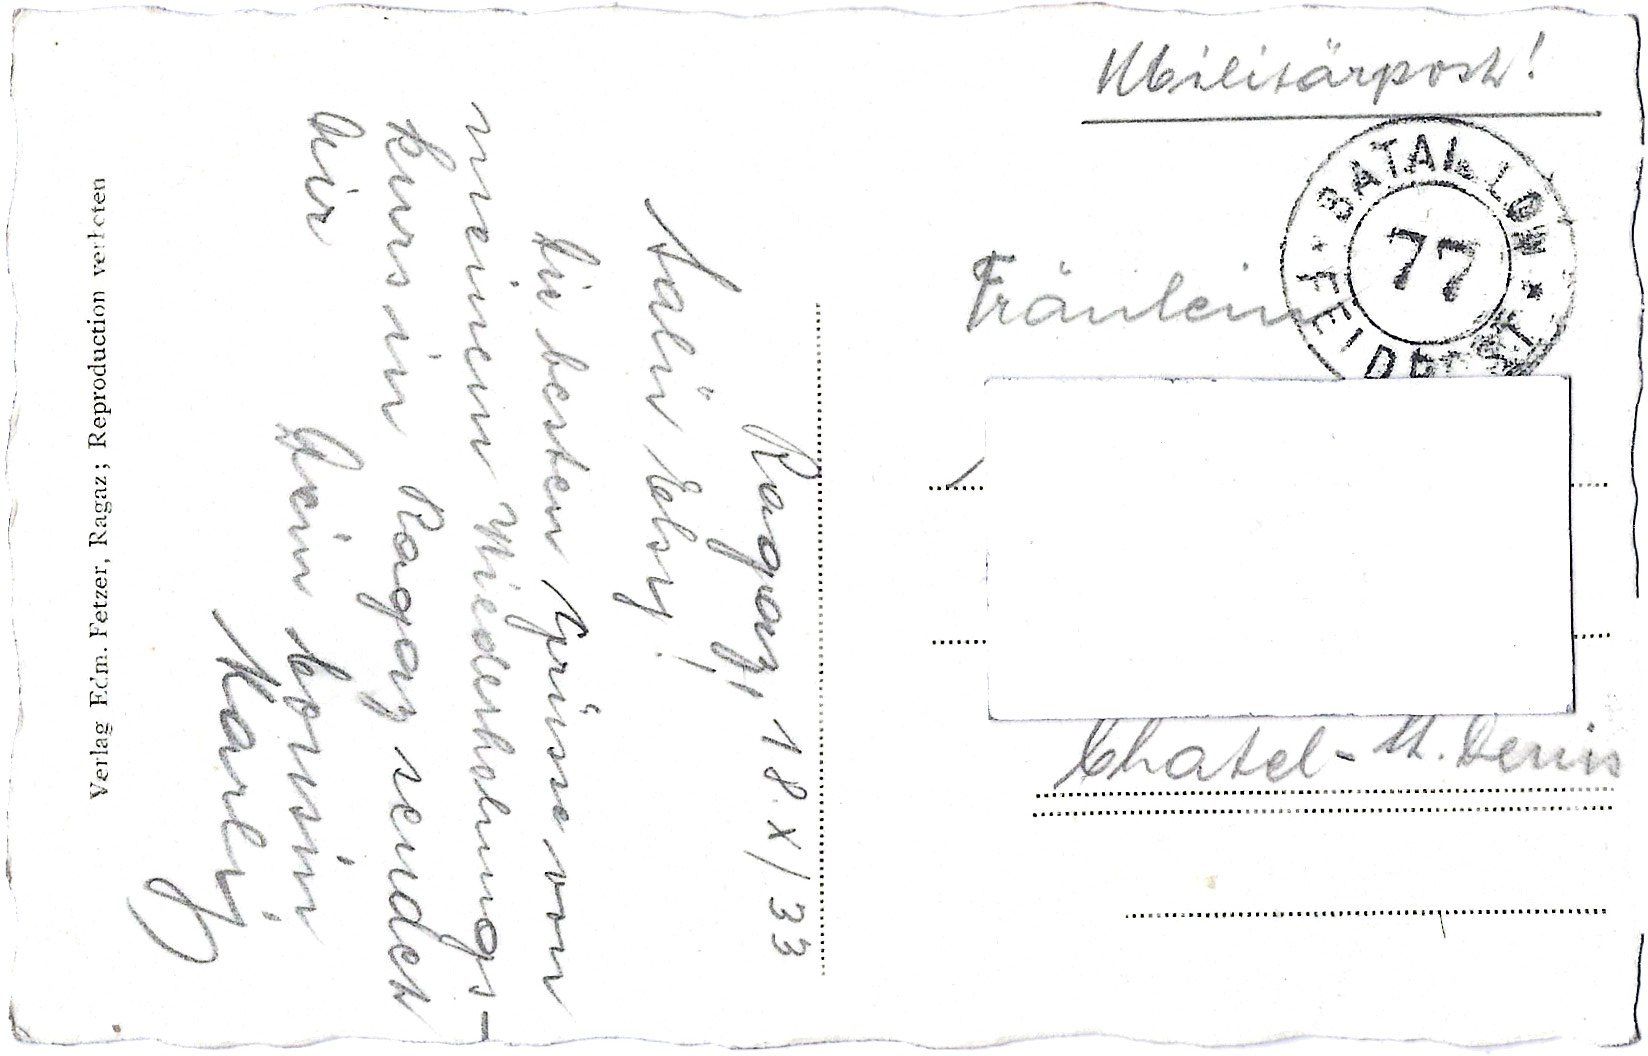 Militärpost!
BATAILLON
77
FELDPOST
Fräulein
Chatel-St. Denis
Ragaz, 18.X/33
Salü Elsy!
Die besten Grüsse von
meinem Wiederholungs-
kurs in Ragaz sendet
Dir
Dein Cousin
Karly
Verlag Edm. Fetzer, Ragaz; Reproduction verboten